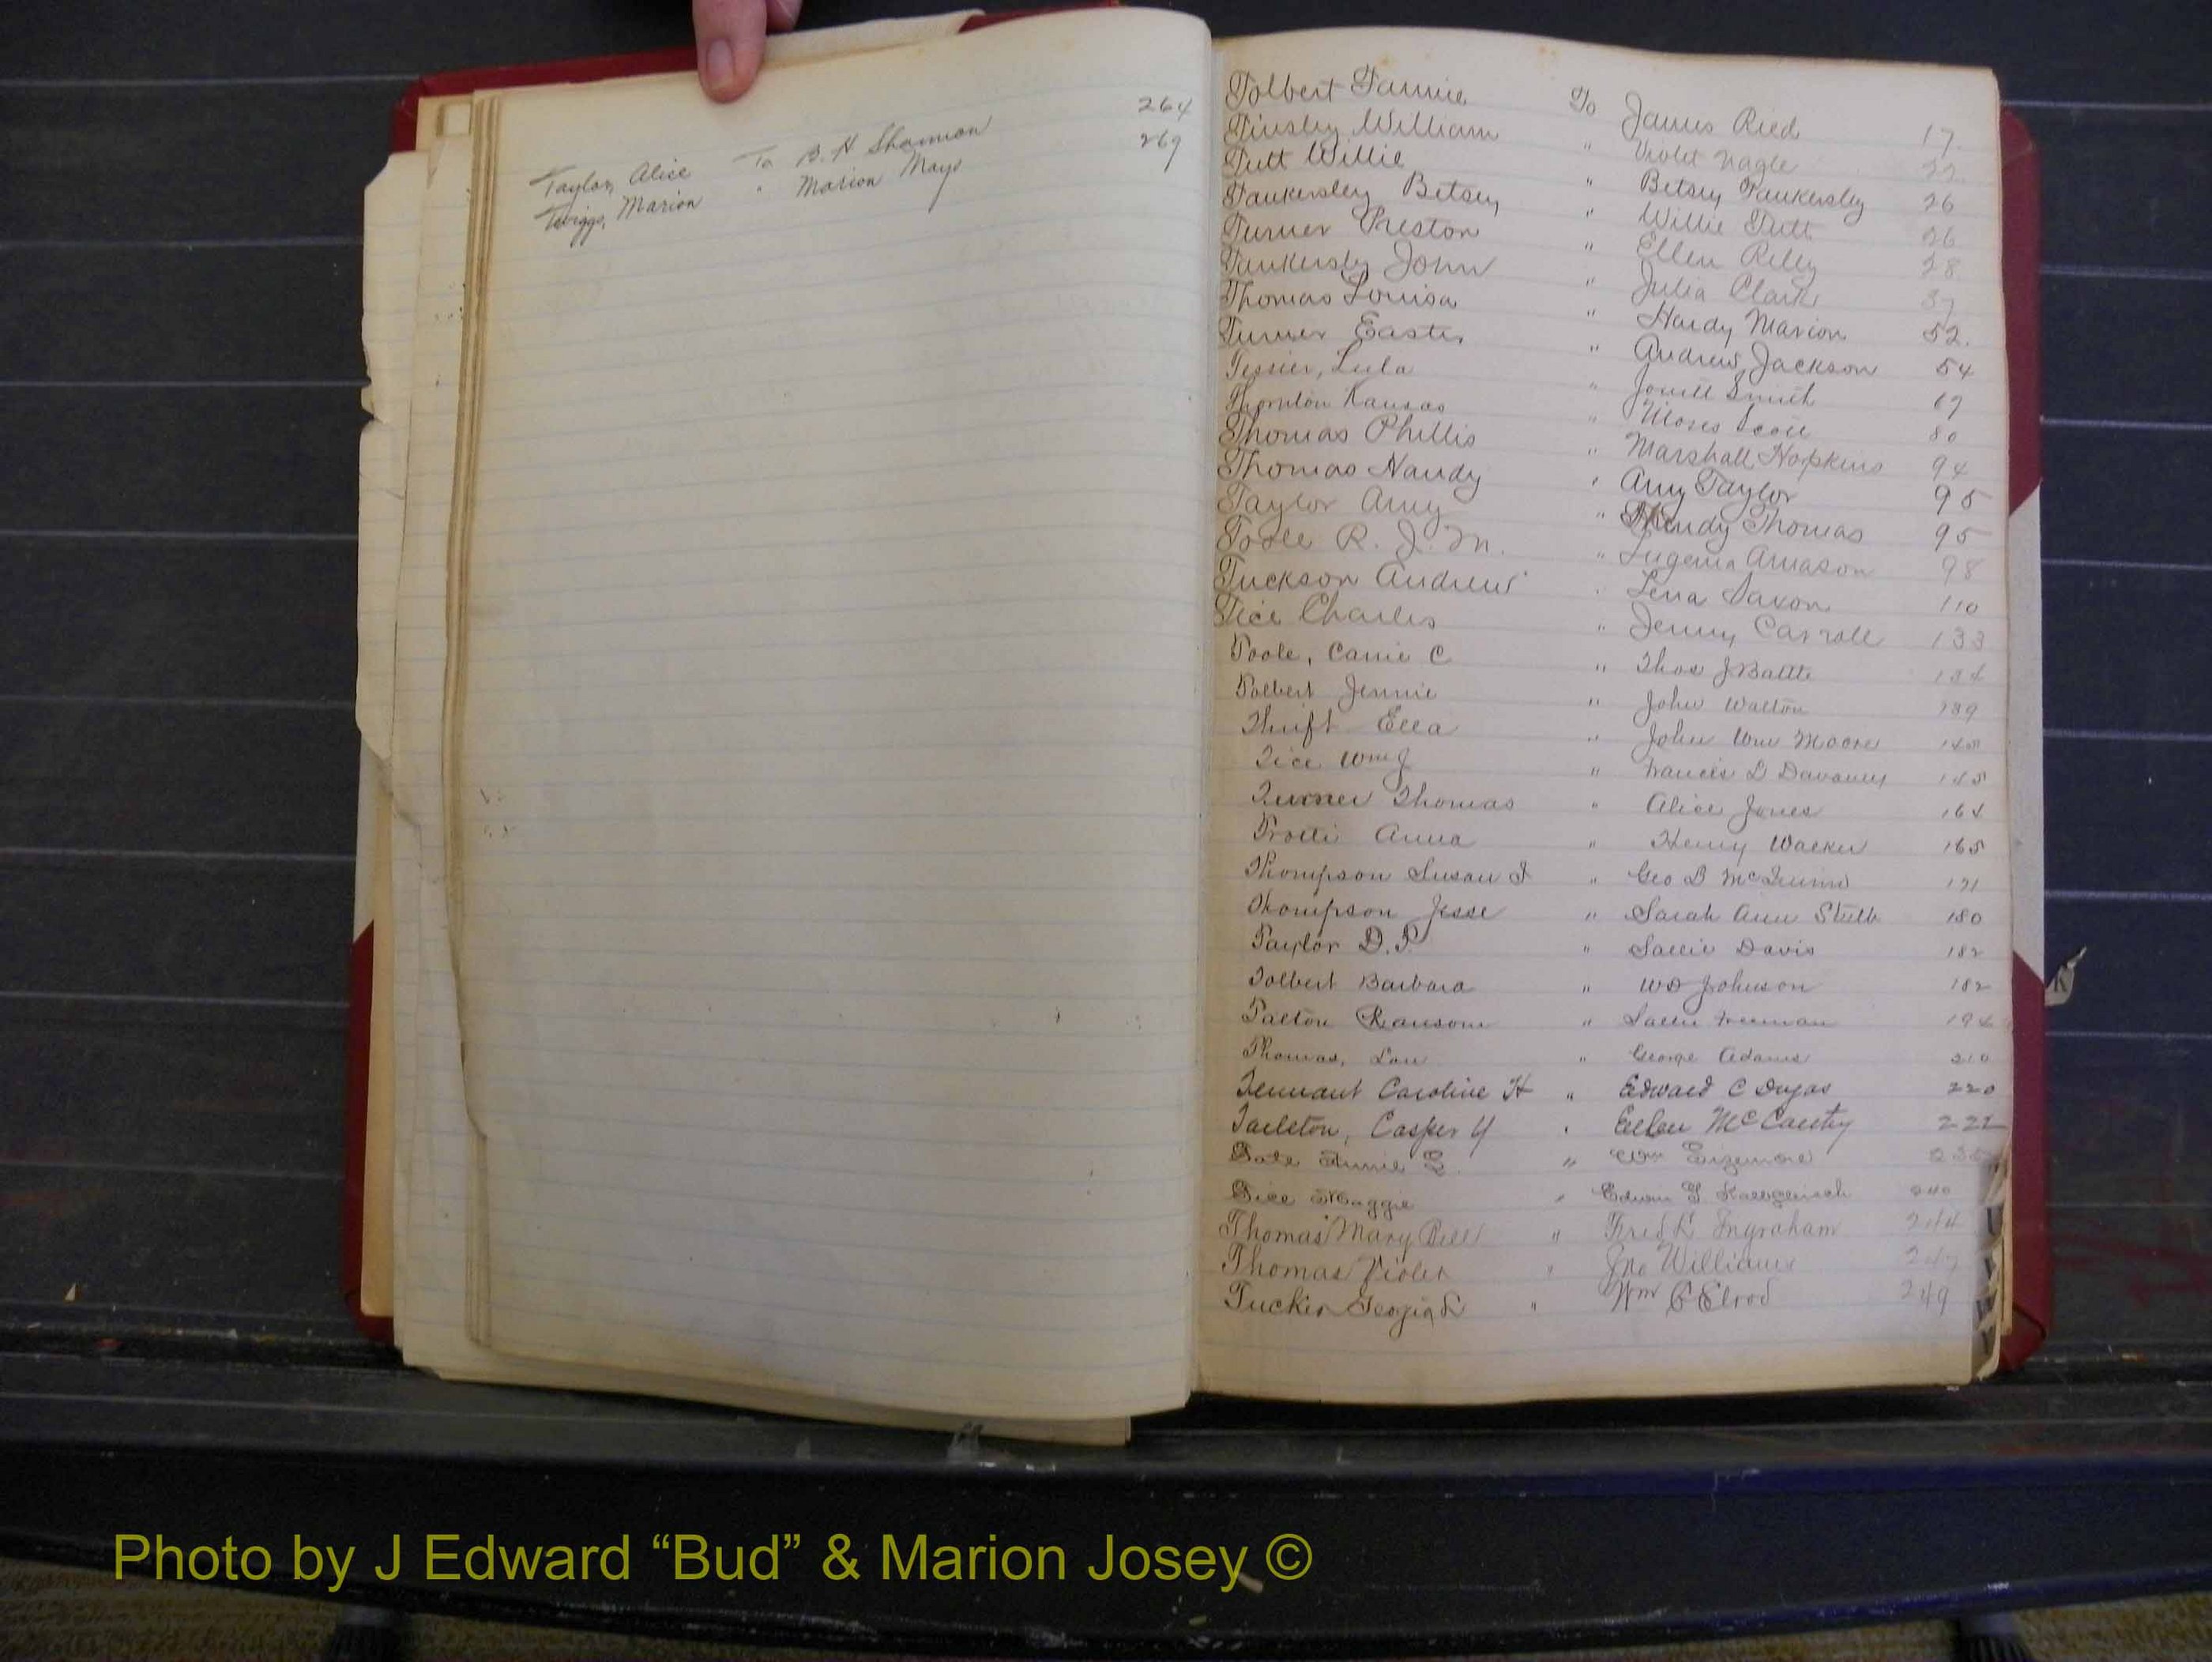 264
Taylor, Alice To B. H Shannon
269
Twiggs, Marion " Marion Mays
Tolbert Fannie To James Ried 17
Tinsley William " Violet Nagle 22
Tutt Willie " Betsey Tankersley 26
Tankersley Betsey " Willie Tutt 26
Turner Preston " Ellen Riley 28
Tankersley John " Julia Clark 37
Thomas Louisa " Hardy Marion 52
Turner Easter " Andrew Jackson 54
Tessier, Lula " Jowitt Smith 67
Thornton Kansas " Moses Scott 80
Thomas Phillis " Marshall Hopkins 94
Thomas Handy " Amy Taylor 95
Taylor Amy " Handy Thomas 95
Toole R. J. M. " Eugenia Amason 98
Tuckson Andrew " Lena Saxon 110
Tice Charles " Jenny Carroll 133
Toole, Carrie C " Thos J Battle 134
Tolbert Jennie " John Walton 139
Thrift Ella " John Wm Moore 145
Tice Wm J " Francis D 145
Turner Thomas " Alice Jones 164
Anna " Henry Walker 165
Thompson Susan J " Geo D 171
Thompson Jesse " Sarah Ann 180
Taylor D. P " Sallie Davis 182
Tolbert Barbara " WD Johnson 182
Ransom " Sallie Freeman 194
Thomas, Lou " George Adams 210
Tennant Caroline H " Edward C Dugas 220
Tarleton, Casper Y " Ellen McCarthy 221
Tate Annie E. " Wm Sizemore
Tice Maggie " Edwin F. 240
Thomas Mary Bell " Fred K Ingraham 244
Thomas Violet " Jno Williams 247
Tucker Georgia L " Wm C Elrod 249
K
U
V
W
Y
Photo by J Edward “Bud” & Marion Josey ©